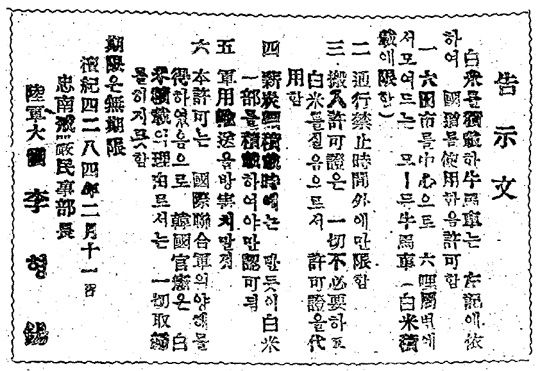 告示文
白米를積載하牛馬車는 左記에依
하여 國道를使用하음許可함
一 大田市를中心으로 六哩周벽에
서모여드는 모ー든牛馬車(白米積
載에限함)
二 通行禁止時間外에만限함
三 搬入許可證은 一切不必要하고
白米를질음으로서 許可證을代
用함
四 薪炭積載時에는 반듯이白米
一部를積載하여야만認可됨
五 軍用輸送을방害치말것
六 本許可는 國際聯合軍의양해를
得하였음으로 韓國官憲은 白
米積載의理由로서는 一切取締
를하지못함
期限은無期限
檀紀四二八四年二月十一日
忠南戒嚴民事部長
陸軍大領 李 형 錫